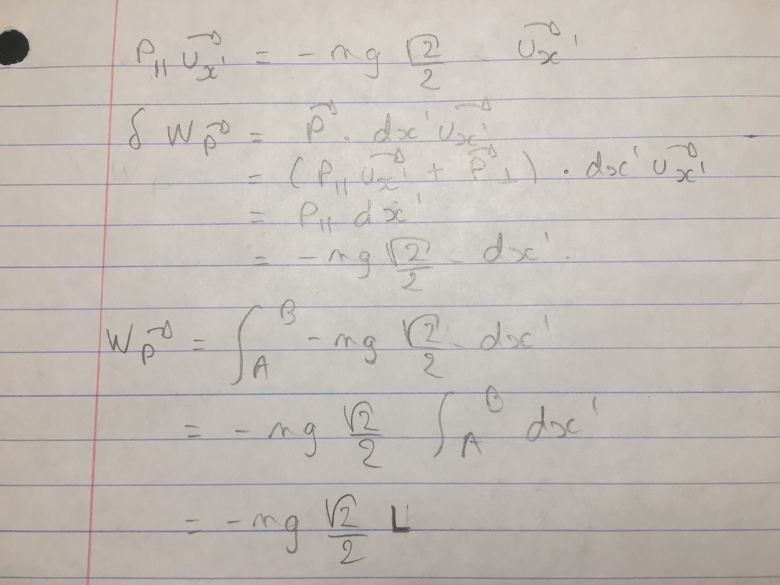 P∥ u⃗x' = - mg √2/2 u⃗x'
δ W P⃗ = P⃗ . dx' u⃗x'
= (P∥ u⃗x' + P⃗⊥) . dx' u⃗x'
= P∥ dx'
= - mg √2/2 dx'.
W P⃗ = ∫_A^B - mg √2/2 dx'
= - mg √2/2 ∫_A^B dx'
= - mg √2/2 L